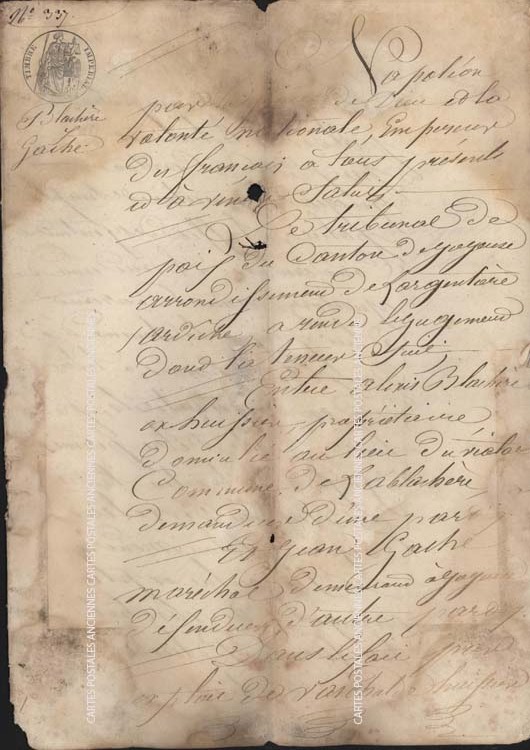 N° 337.
TIMBRE IMPERIAL
Blachère
Gache
Napoléon
par la de Dieu et la
volonté nationale, Empereur
des français a tous présents
et à venir Salut,
Le tribunal de
paix du Canton de Joyeuse
arrondissement de Largentière
ardèche a rendu le jugement
dont la teneur Suit
Entre alexis Blachère
ex huissier propriétaire
domicilié au lieu du
Commune de Lablachère
demandeur d'une part
Et jean Gache
maréchal demeurant à Joyeuse
défendeur d'autre part
Dans le fait par
exploit de huissier
CARTES POSTALES ANCIENNES CARTES POSTALES ANCIENNES CARTES POSTALES ANCIENNES
CARTES POSTALES ANCIENNES CARTES POSTALES ANCIENNES CARTES POSTALES ANCIENNES